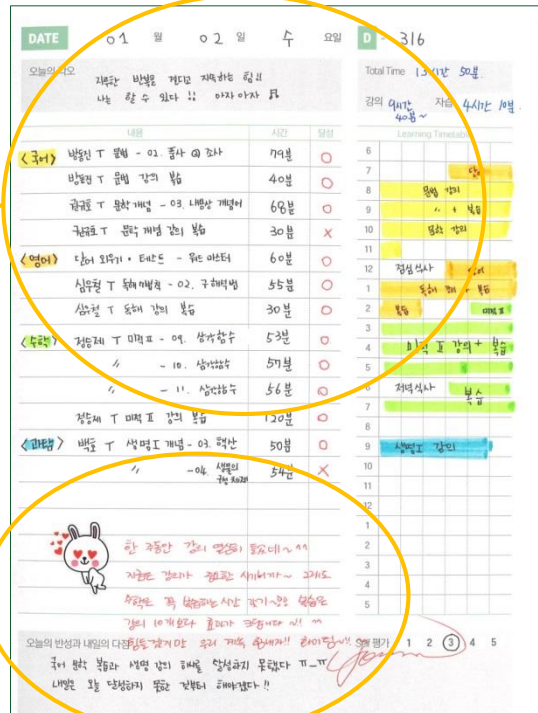 DATE 01 월 02 일 수 요일 D - 316
오늘의 각오
지루한 반복을 견디고 지속하는 힘!!
나는 할 수 있다 !! 아자아자
Total Time 13시간 50분
강의 9시간 40분~ 자습 4시간 10분
내용 시간 달성
<국어> 방동진 T 문법 - 02. 품사 @ 조사 79분 O
방동진 T 문법 강의 복습 40분 O
권규호 T 문학개념 - 03. 내용상 개념어 68분 O
권규호 T 문학 개념 강의 복습 30분 X
<영어> 단어 외우기 + 테스트 - 워드마스터 60분 O
심우철 T 독해 - 02. 구해석법 55분 O
심우철 T 독해 강의 복습 30분 O
<수학> 정승제 T 미적 II - 09. 삼각함수 53분 O
〃 - 10. 삼각함수 57분 O
〃 - 11. 삼각함수 56분 O
정승제 T 미적 II 강의 복습 120분 O
<과탐> 백호 T 생명I 개념 - 03. 핵산 50분 O
〃 - 04. 생물의 구성 체제 54분 X
Learning Timetable
6
7 단어
8 문법 강의
9 〃 + 복습
10 문학 강의
11
12 점심식사 단어
1 독해 복습
2 복습 미적 II
3
4 미적 II 강의 + 복습
5
6 저녁식사 복습
7
8
9 생명I 강의
10
11
12
1
2
3
4
5
한 주동안 강의 열심히 들었네~ ^^
지금은 강의가 필요한 시기니까~ 그래도
수학은 꼭 복습하는 시간 갖기~ 복습은
강의 10개보다 효과가 크답니다 ~!! ^^
힘들겠지만 우리 계속 힘내자!! 화이팅~!!
오늘의 반성과 내일의 다짐
Self 평가 1 2 3 4 5
국어 문학 복습과 생명 강의 하나를 달성하지 못했다 ㅠ_ㅠ
내일은 오늘 달성하지 못한 것부터 해야겠다 !!